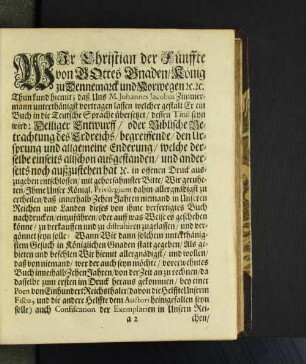 WIr Christian der Fünffte
von GOttes Gnaden/ König
zu Dennemarck und Norwegen ꝛc. ꝛc.
Thun kund hiemit; daß Uns M. Johannes Jacobus Zimmer-
mann unterthänigst vortragen lassen welcher gestalt Er ein
Buch in die Teutsche Sprache übersetzet/ dessen Titul seyn
wird: Heiliger Entwurff/ oder Biblische Be-
trachtung des Erdreichs/ begreiffende/ den Ur-
sprung und allgemeine Enderung/ welche der-
selbe einseits allschon ausgestanden/ und ander-
seits noch außzustehen hat ꝛc. in offenen Druck aus-
zugeben entschlossen/ mit gehorsahmster Bitte; Wir geruhe-
ten Jhme Unser Königl. Privilegium dahin allergnädigst zu
ertheilen/ daß innerhalb Zehen Jahren niemand in Unseren
Reichen und Landen dieses von ihme verfertigtes Buch
nachdrucken/ einzuführen/ oder auff was Weise es geschehen
könne/ zu verkauffen und zu distrahiren zugelassen/ und ver-
gönnet seyn solle: Wann Wir dann solchem unterthänig-
sten Gesuch in Königlichen Gnaden statt gegeben/ Als ge-
bieten und befehlen Wir hiemit allergnädigst/ und wollen/
daß von niemand/ wer der auch seyn möchte/ vorerwehntes
Buch innerhalb Zehen Jahren/ von der Zeit an zu rechnen/ da
dasselbe zum ersten im Druck heraus gekommen/ bey einer
Poen von Einhundert Reichsthaler/ davon die Helffte Unserm
Fisco, und die andere Helffte dem Auctori heimgefallen seyn
solle) auch Confiscation der Exemplarien in Unsern Rei-
a 2 chen/